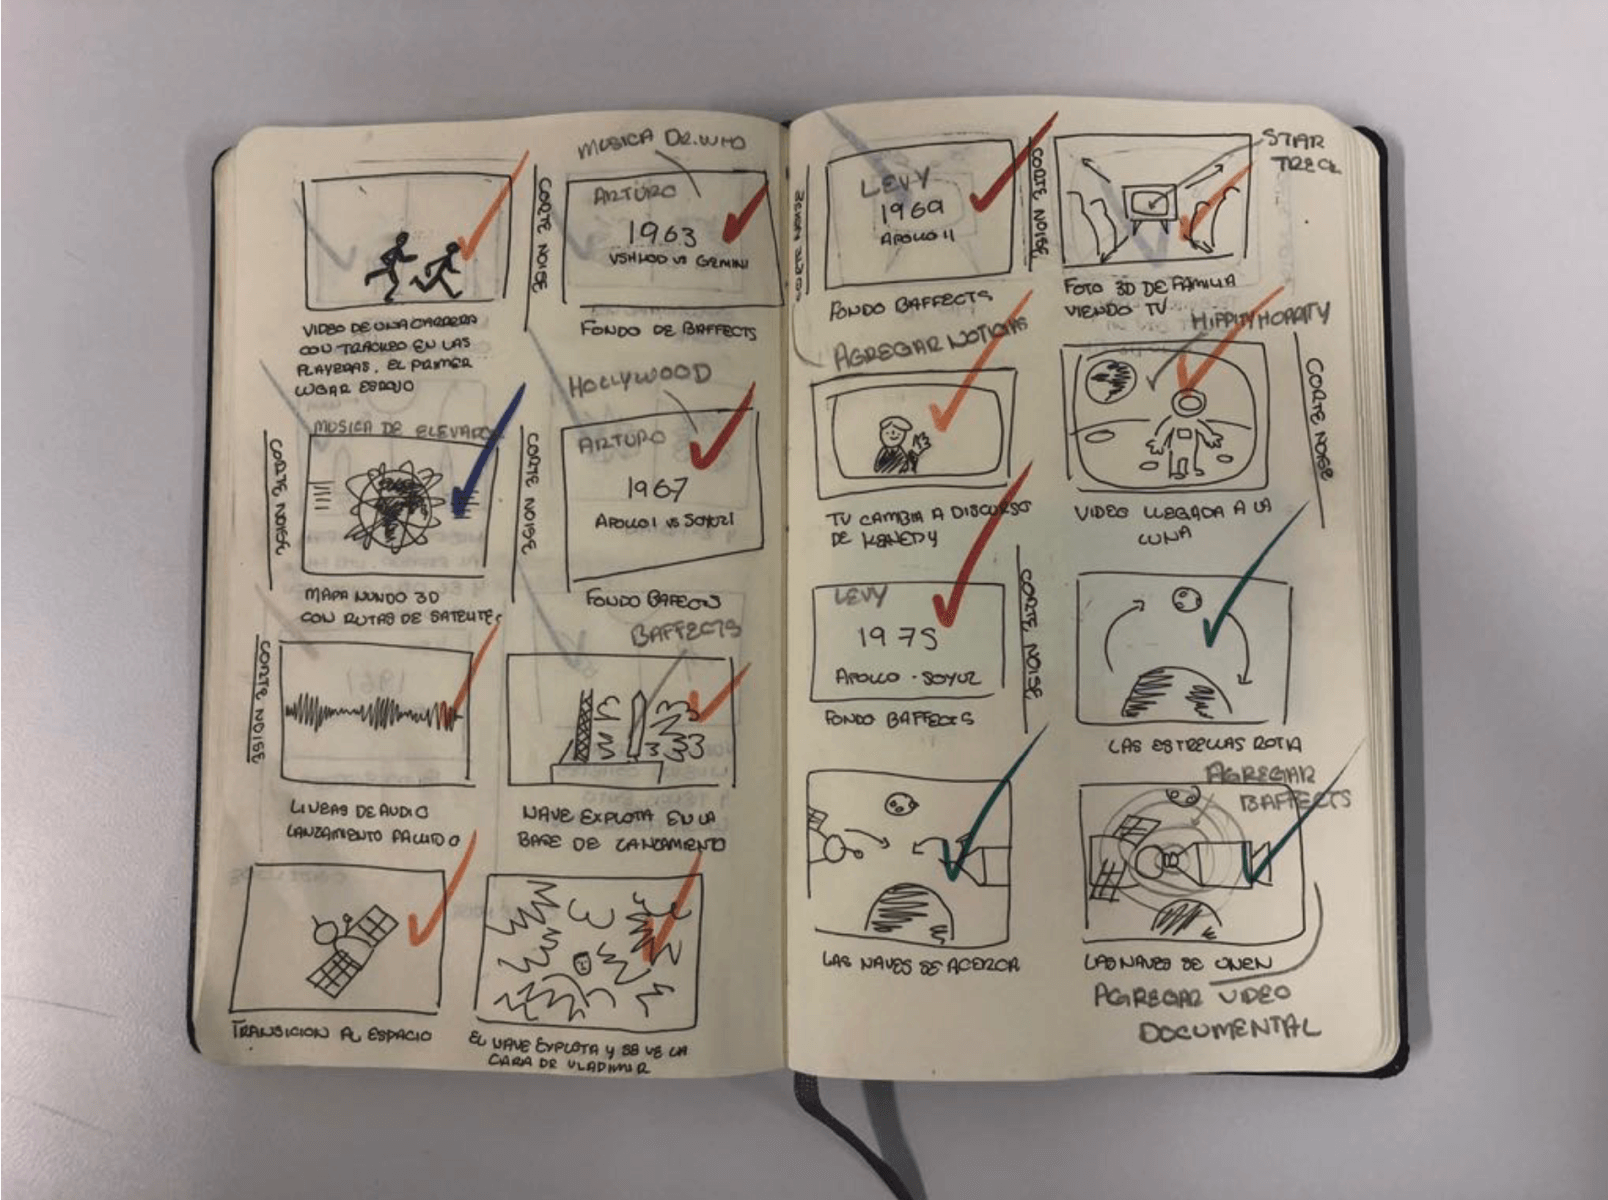 VIDEO DE UNA CARRERA
CON TRACKEO EN LAS
PLAYERAS, EL PRIMER
LUGAR ES ROJO
CORTE NOISE
MUSICA DR. WHO
ARTURO
1963
GEMINI
FONDO DE BAFFECTS
CORTE NOISE
MUSICA DE ELEVADOR
MAPA MUNDO 3D
CON RUTAS DE SATELITES
CORTE NOISE
HOLLYWOOD
ARTURO
1967
APOLLO 1 VS SOYUZ1
FONDO BAFECTS
CORTE NOISE
LINEAS DE AUDIO
LANZAMIENTO FALLIDO
BAFFECTS
NAVE EXPLOTA EN LA
BASE DE LANZAMIENTO
TRANSICION AL ESPACIO
EL NAVE EXPLOTA Y SE VE LA
CARA DE VLADIMIR
CORTE NOISE
LEVY
1969
APOLLO 11
FONDO BAFFECTS
CORTE NOISE
STAR
TRECK
FOTO 3D DE FAMILIA
VIENDO TV
AGREGAR NOTICIAS
TV CAMBIA A DISCURSO
DE KENEDY
HIPPITY HOPPITY
VIDEO LLEGADA A LA
LUNA
CORTE NOISE
LEVY
1975
APOLLO - SOYUZ
FONDO BAFFECTS
CORTE NOISE
LAS ESTRELLAS ROTA
LAS NAVES SE ACERCA
AGREGAR
BAFFECTS
LAS NAVES SE UNEN
AGREGAR VIDEO
DOCUMENTAL